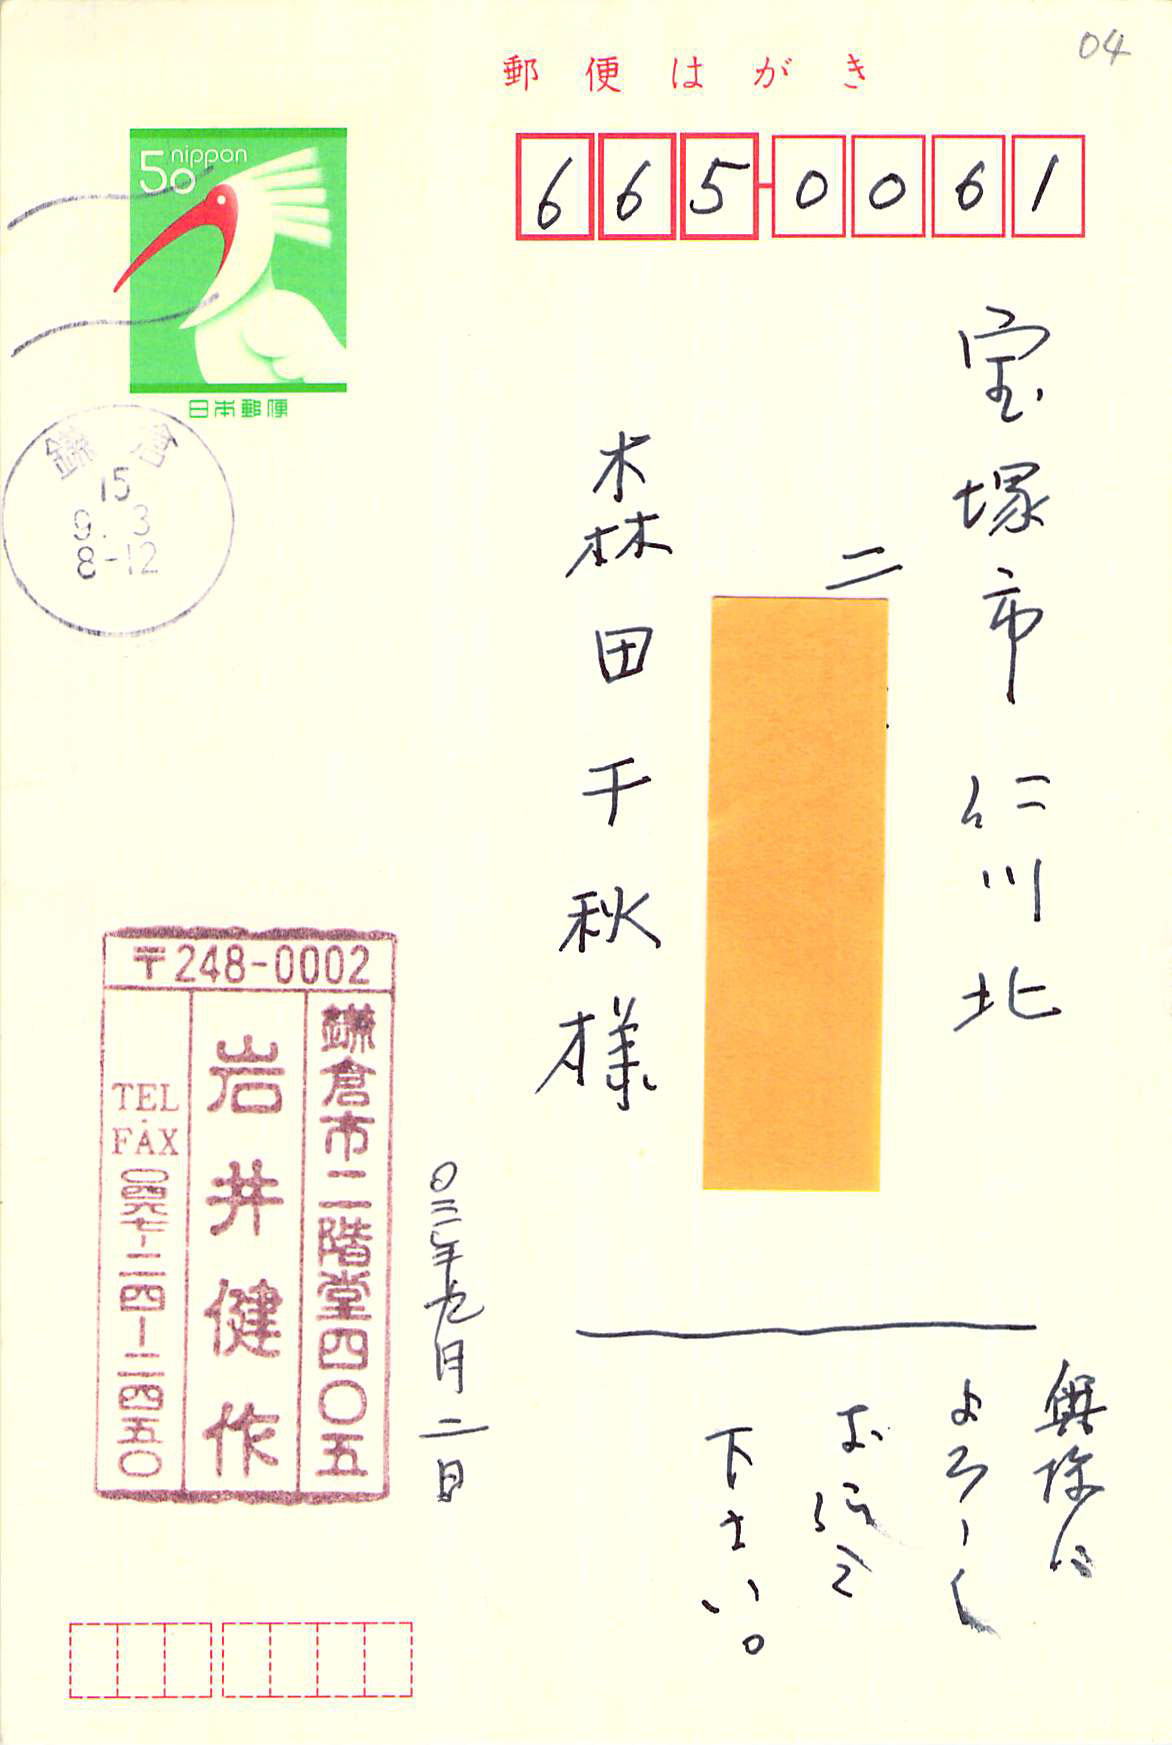 04
郵便はがき
nippon
50
日本郵便
665-0061
宝塚市仁川北
二
森田千秋様
鎌倉
15
9.3
8-12
〒248-0002
鎌倉市二階堂四〇五
岩井健作
TEL・FAX 〇四六七-二四-二四五〇
〇三年九月二日
よろしく
お伝え
下さい。